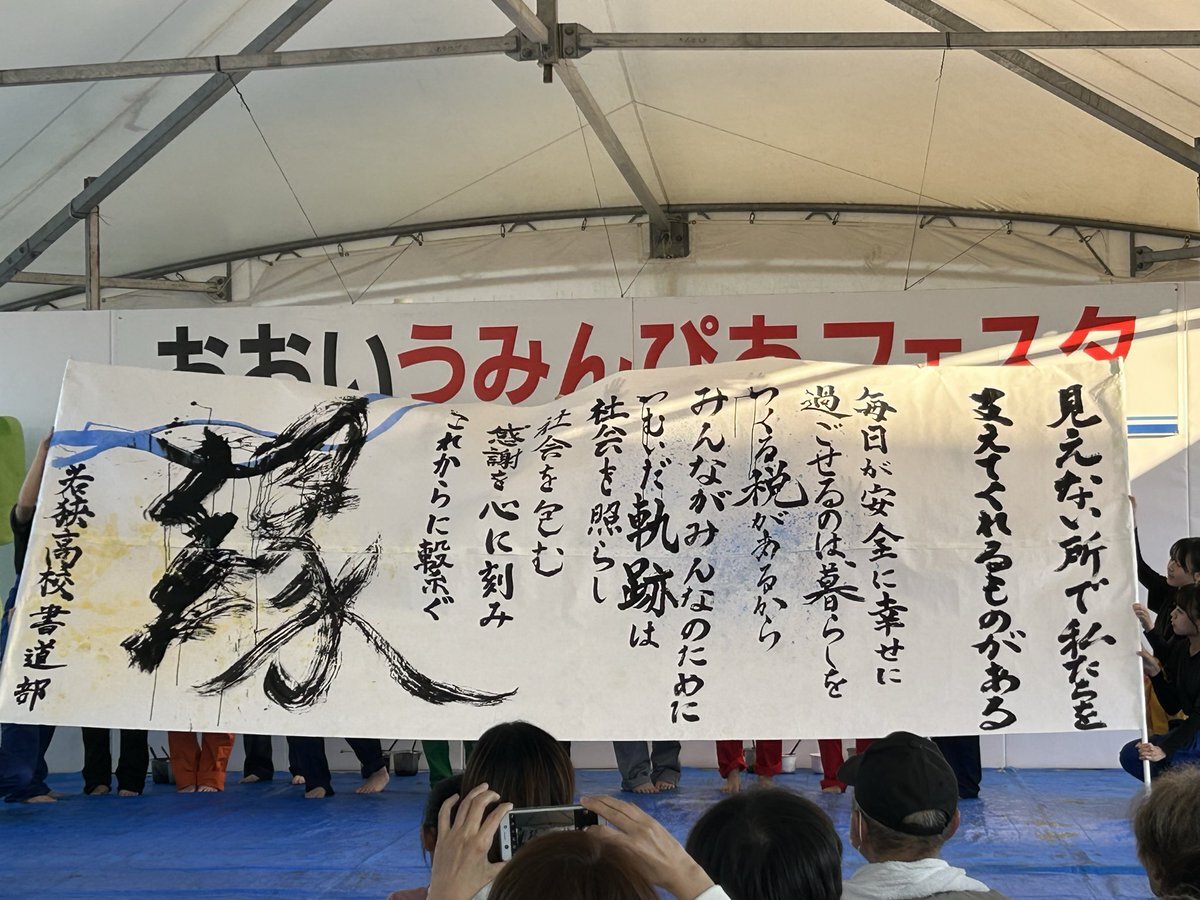 おおいうみんぴあフェスタ
見えない所で私たちを
支えてくれるものがある
毎日が安全に幸せに
過ごせるのは、暮らしを
つくる税があるから
みんながみんなのために
つむいだ軌跡は
社会を照らし
社会を包む
感謝を心に刻み
これからに繋ぐ
縁
若狭高校書道部